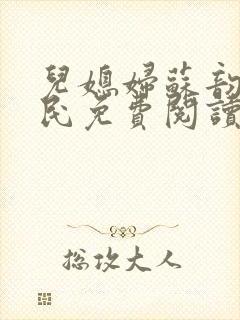 兒媳婦蘇韵
民免費閱讀
總攻大人